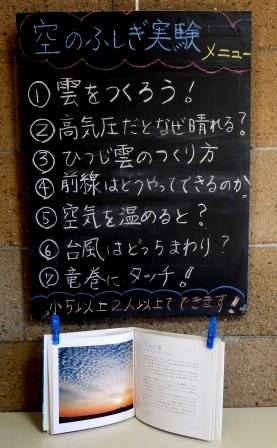 空のふしぎ実験
メニュー
① 雲をつくろう！
② 高気圧だとなぜ晴れる？
③ ひつじ雲のつくり方
④ 前線はどうやってできるのか
⑤ 空気を温めると？
⑥ 台風はどっちまわり？
⑦ 竜巻にタッチ！！
小5以上2人以上でできます！！